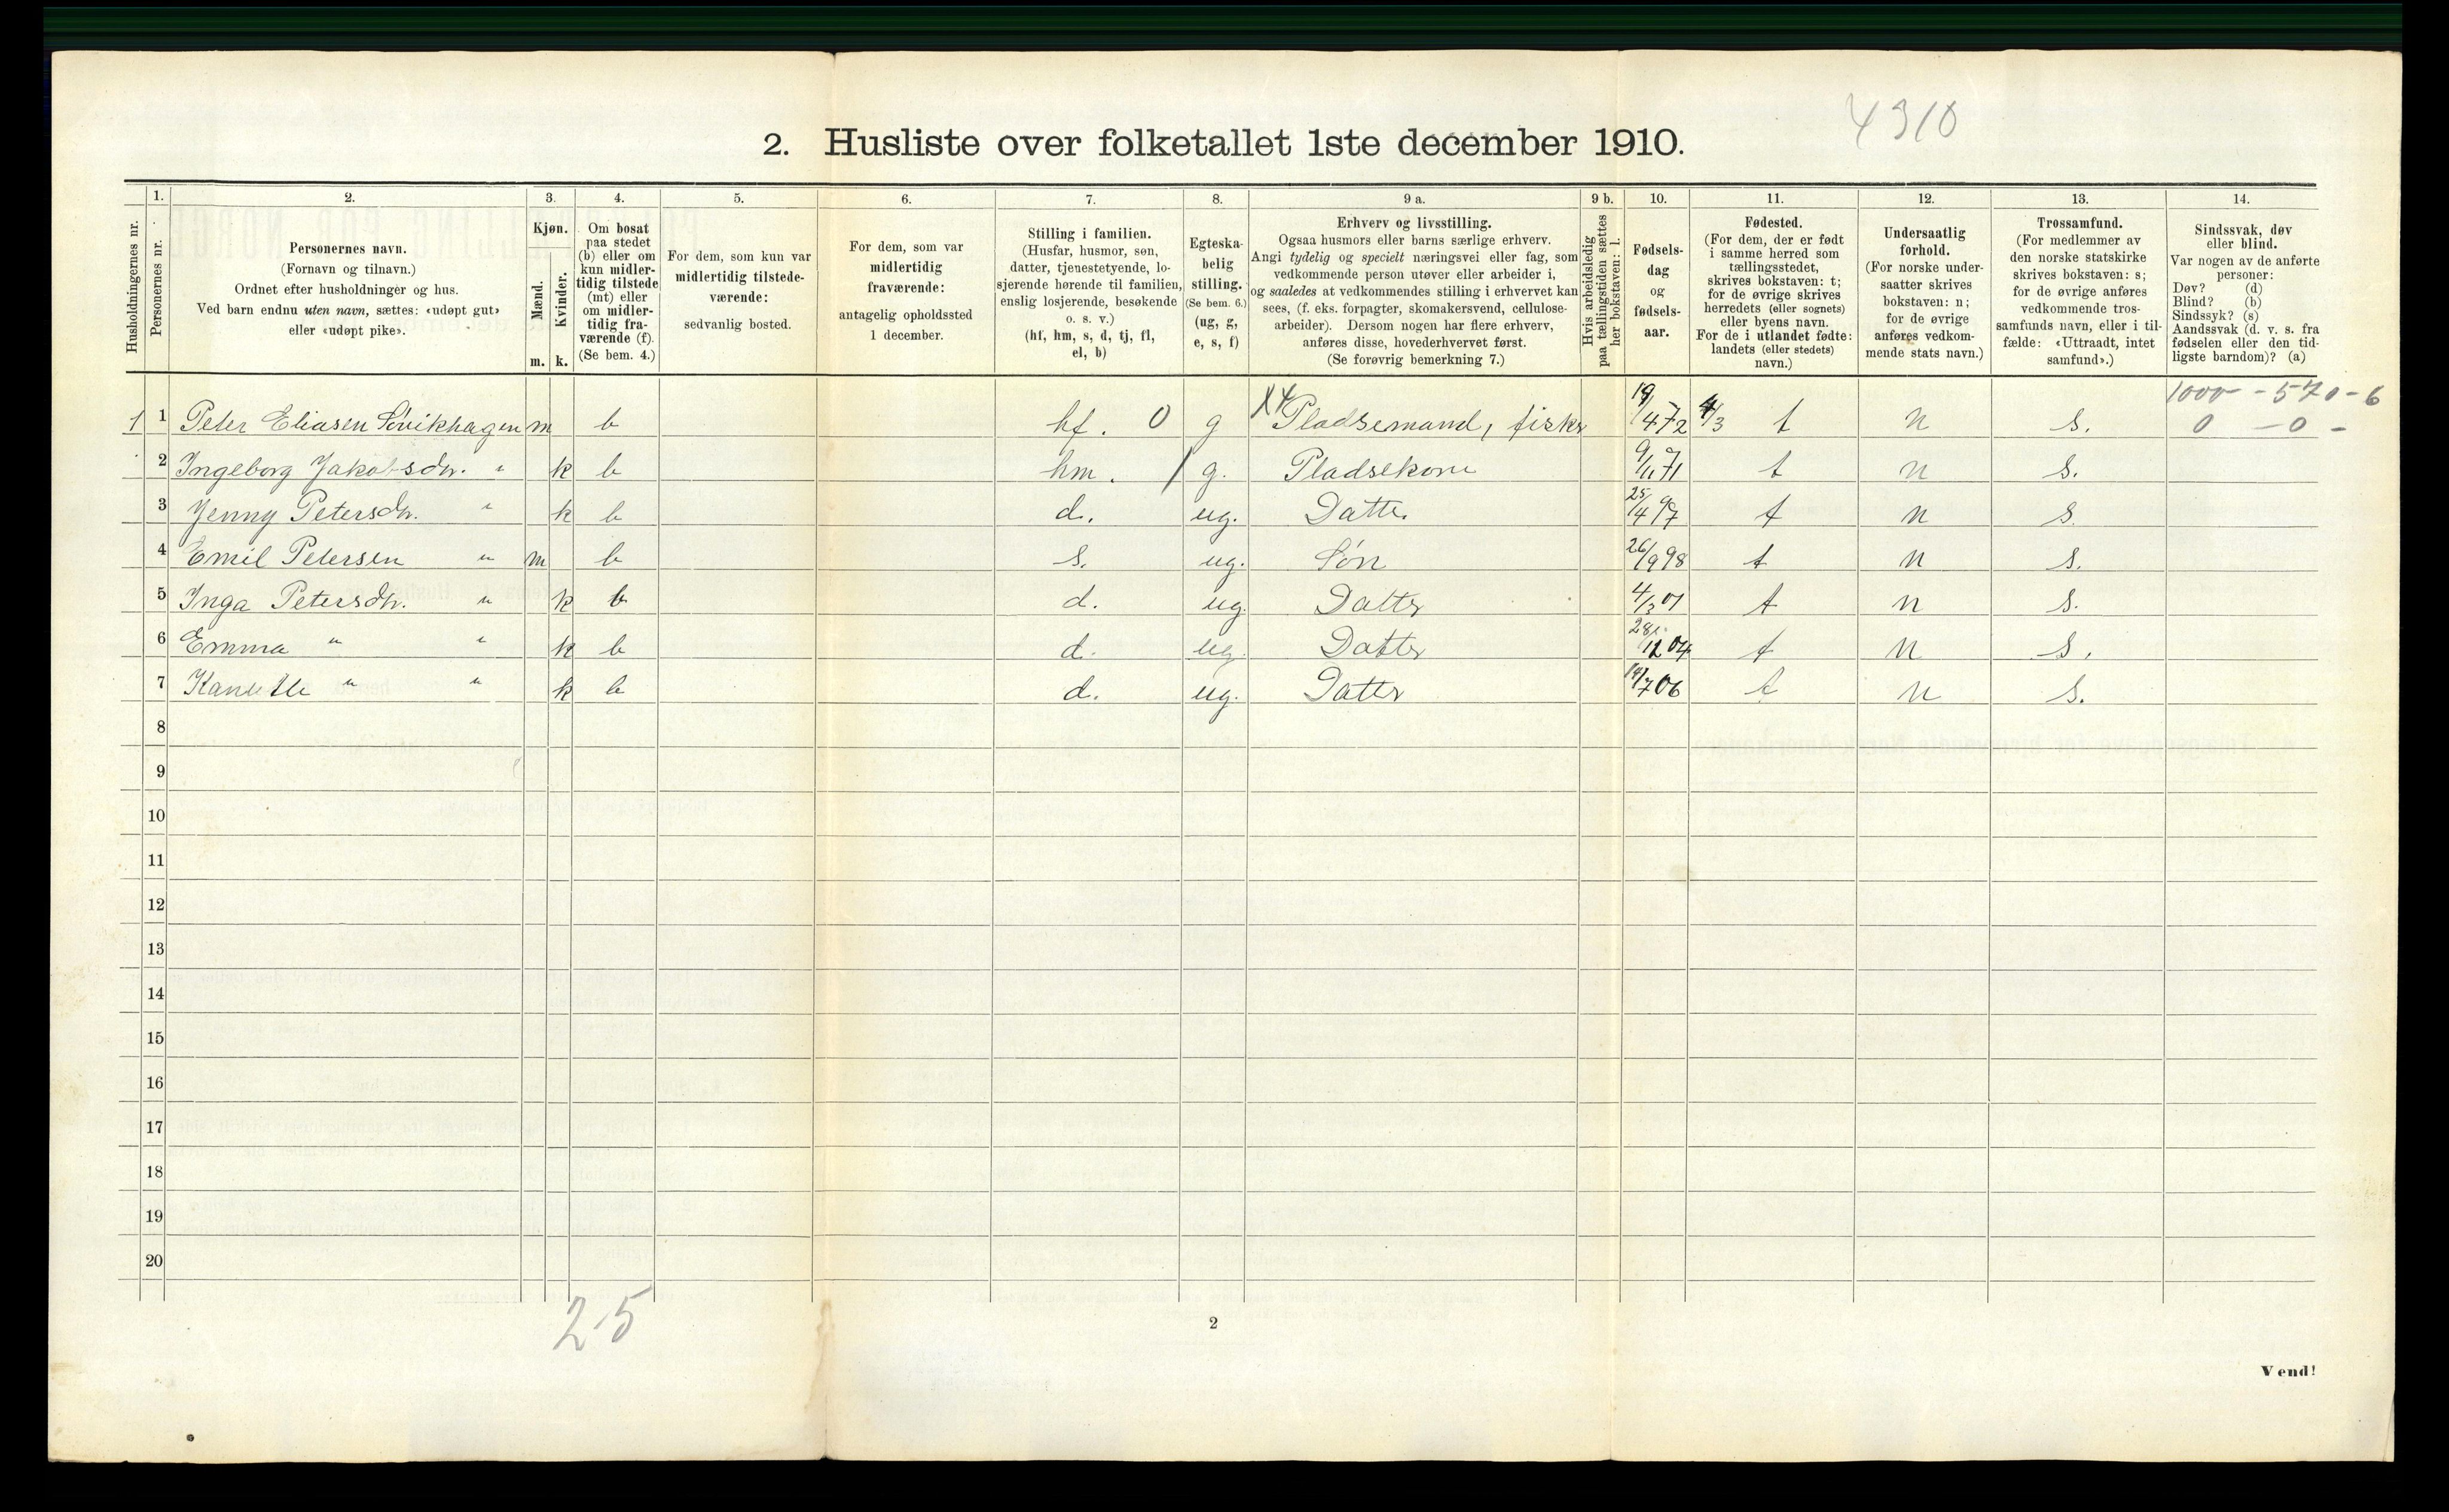 4310
2. Husliste over folketallet 1ste december 1910.
Husholdningernes nr.
1.
Personernes nr.
2.
Personernes navn.
(Fornavn og tilnavn.)
Ordnet efter husholdninger og hus.
Ved barn endnu uten navn, sættes: «udøpt gut»
eller «udøpt pike».
3.
Kjøn.
Mænd.
Kvinder.
m. k.
4.
Om bosat
paa stedet
(b) eller om
kun midler-
tidig tilstede
(mt) eller
om midler-
tidig fra-
værende (f).
(Se bem. 4.)
5.
For dem, som kun var
midlertidig tilstede-
værende:
sedvanlig bosted.
6.
For dem, som var
midlertidig
fraværende:
antagelig opholdssted
1 december.
7.
Stilling i familien.
(Husfar, husmor, søn,
datter, tjenestetyende, lo-
sjerende hørende til familien,
enslig losjerende, besøkende
o. s. v.)
(hf, hm, s, d, tj, fl,
el, b)
8.
Egteska-
belig
stilling.
(Se bem. 6.)
(ug, g,
e, s, f)
9 a.
Erhverv og livsstilling.
Ogsaa husmors eller barns særlige erhverv.
Angi tydelig og specielt næringsvei eller fag, som
vedkommende person utøver eller arbeider i,
og saaledes at vedkommendes stilling i erhvervet kan
sees, (f. eks. forpagter, skomakersvend, cellulose-
arbeider). Dersom nogen har flere erhverv,
anføres disse, hovederhvervet først.
(Se forøvrig bemerkning 7.)
9 b.
Hvis arbeidsledig
paa tællingstiden sættes
her bokstaven: l.
10.
Fødsels-
dag
og
fødsels-
aar.
11.
Fødested.
(For dem, der er født
i samme herred som
tællingsstedet,
skrives bokstaven: t;
for de øvrige skrives
herredets (eller sognets)
eller byens navn.
For de i utlandet fødte:
landets (eller stedets)
navn.)
12.
Undersaatlig
forhold.
(For norske under-
saatter skrives
bokstaven: n;
for de øvrige
anføres vedkom-
mende stats navn.)
13.
Trossamfund.
(For medlemmer av
den norske statskirke
skrives bokstaven: s;
for de øvrige anføres
vedkommende tros-
samfunds navn, eller i til-
fælde: «Uttraadt, intet
samfund».)
14.
Sindssvak, døv
eller blind.
Var nogen av de anførte
personer:
Døv? (d)
Blind? (b)
Sindssyk? (s)
Aandssvak (d. v. s. fra
fødselen eller den tid-
ligste barndom)? (a)
1000 - 570 - 6
1 1 Peter Eliasen Søvikhagen m b hf. 0 g Pladsemand, fisker 19/4 72 4/3 t n s. 0 - 0 -
2 Ingeborg Jakobsdr. " k b hm. / g. Pladsekone 9/11 71 t n s.
3 Jenny Petersdr. " k b d. ug. Datter 25/4 97 t n s.
4 Emil Petersen " m b s. ug. Søn 26/9 98 t n s.
5 Inga Petersdr. " k b d. ug. Datter 4/3 01 t n s.
6 Emma " " k b d. ug. Datter 28/12 04 t n s.
7 " " k b d. ug. Datter 14/7 06 t n s.
8
9
10
11
12
13
14
15
16
17
18
19
20
2-5
2
Vend!